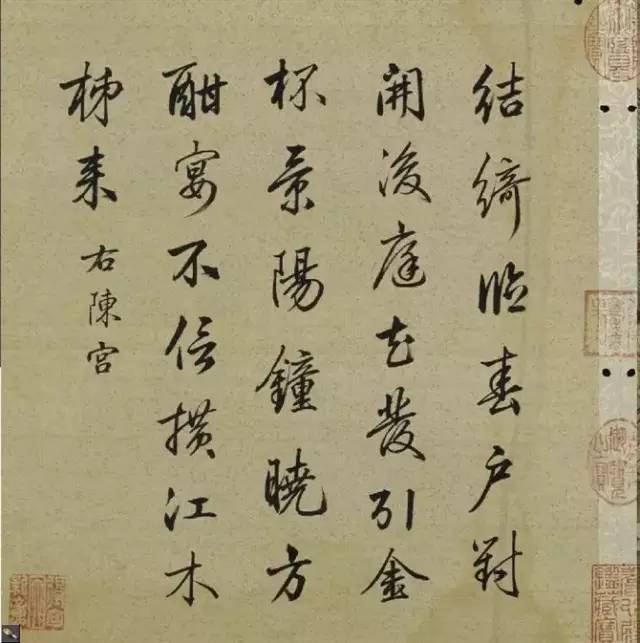 結綺臨春戶對
開後庭花發引金
杯景陽鐘曉方
酣宴不信橫江木
柹來 右陳宮